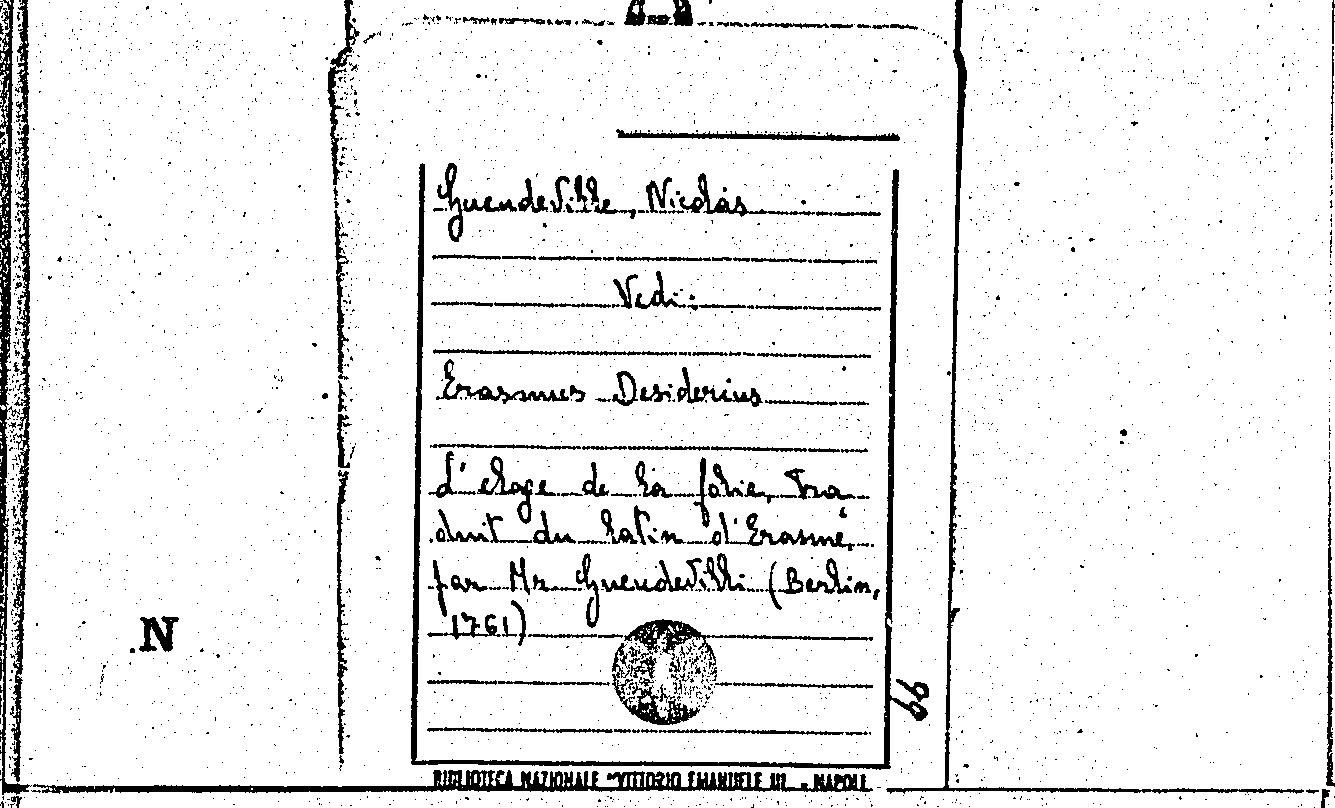 Gueudeville, Nicolas
Vedi:
Erasmus Desiderius
L'eloge de la folie, tra
duit du latin d'Erasme,
par Mr Gueudeville (Berlin,
1761)
N
99
BIBLIOTECA NAZIONALE "VITTORIO EMANUELE III. - NAPOLI